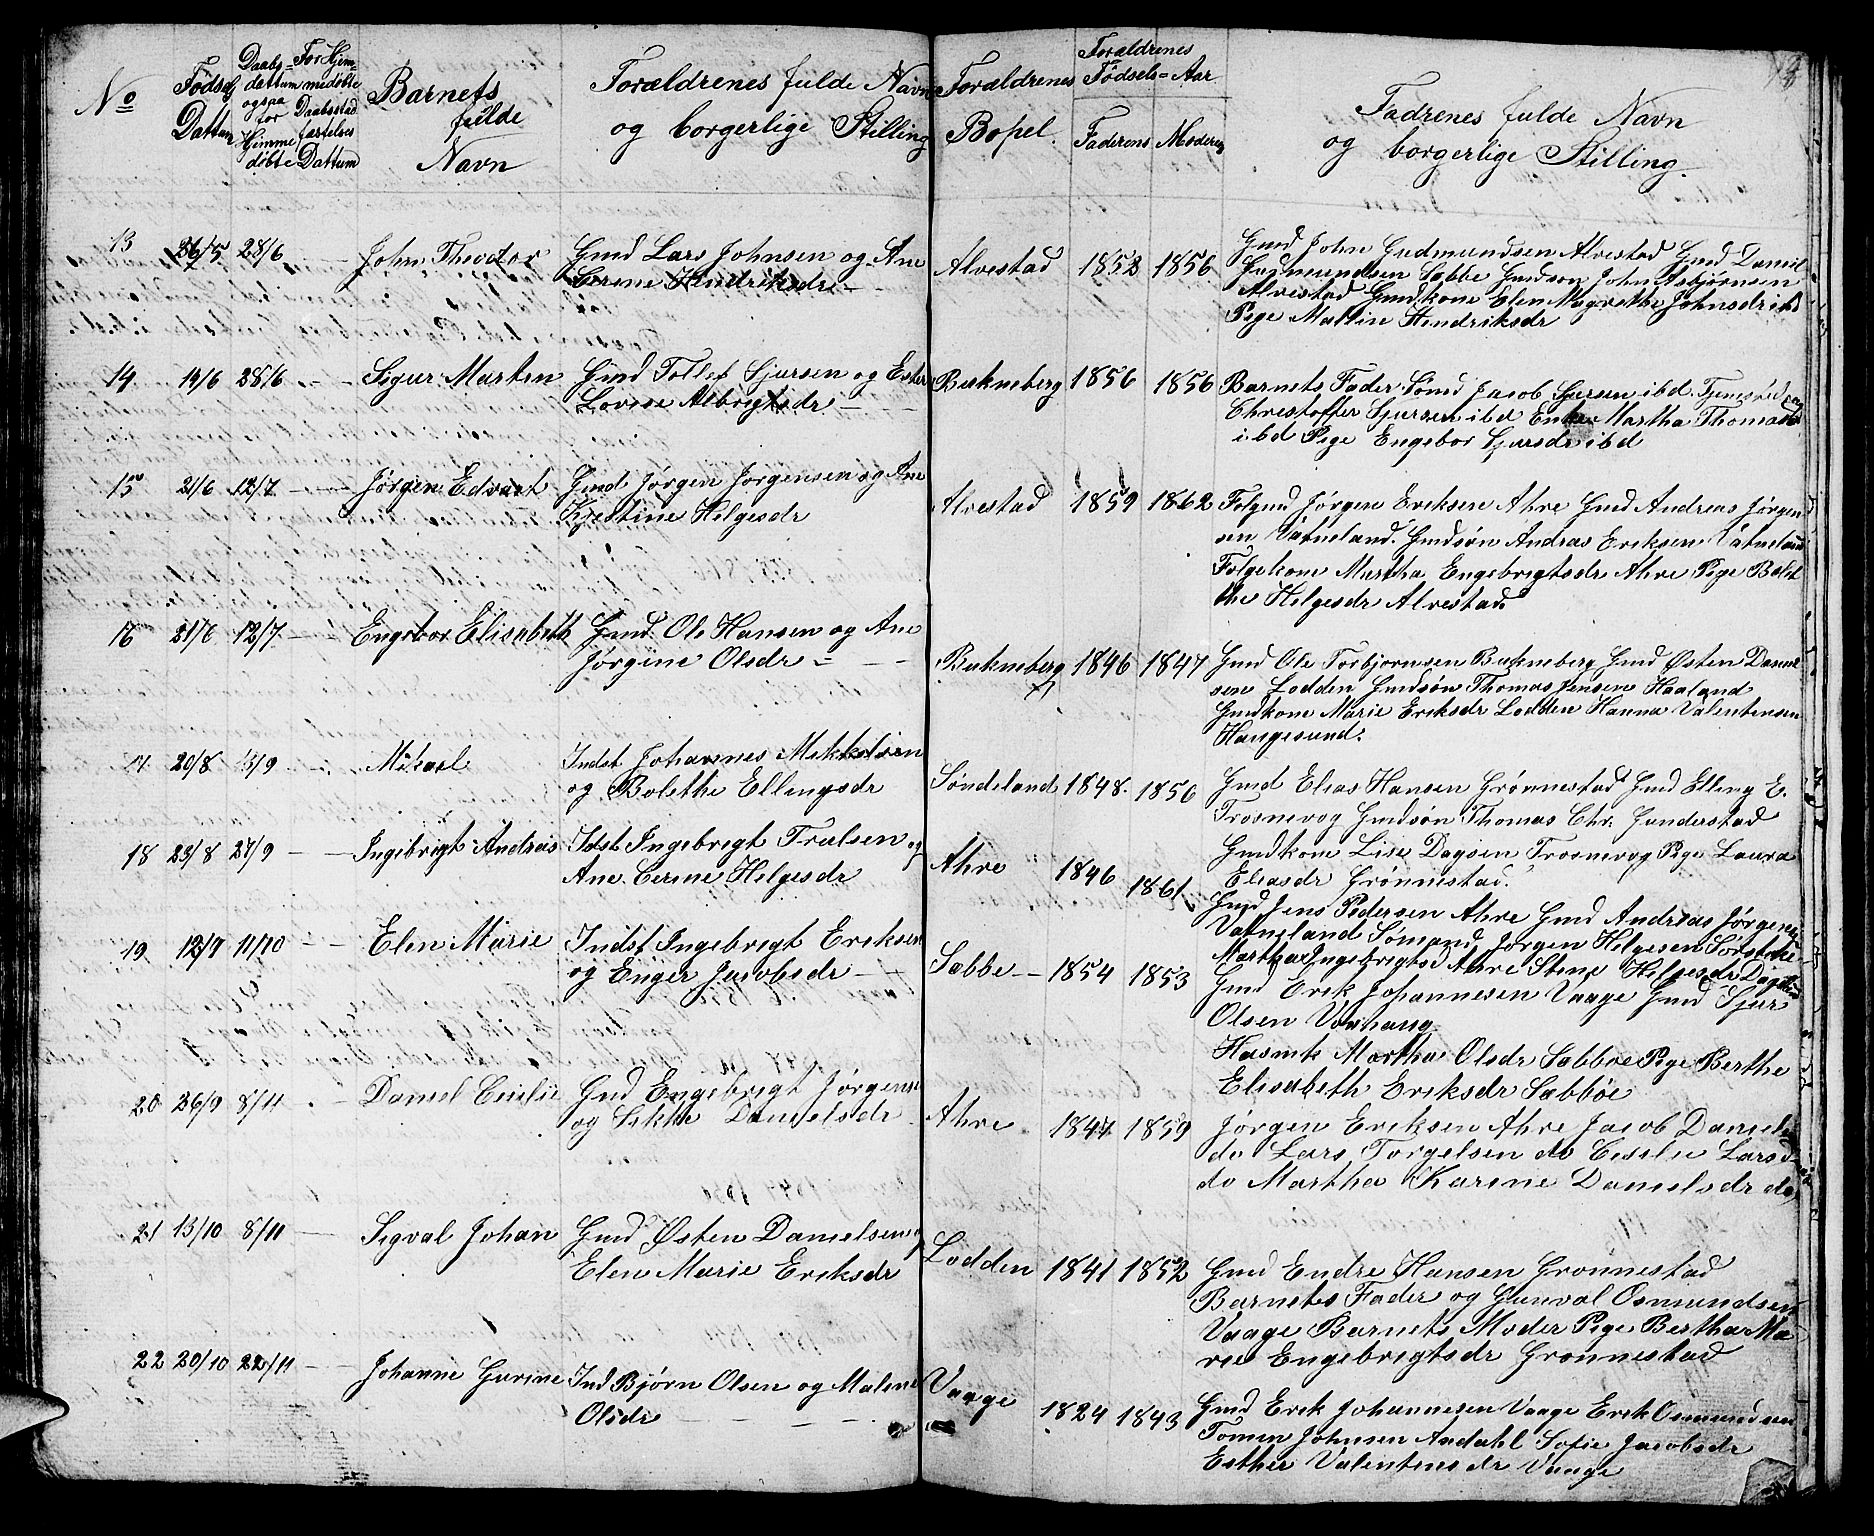 No
Fødsels Dattum
Daabs= dattum ogspa for Hjimme døbte
For Hjem= medøbte Daabsstad fæstelses Dattum
Barnets fulde Navn
Forældrenes fulde Navn og borgerlige Stilling
Forældrenes Bopel.
Forældrenes Fødsels=Aar
Faderens Moderens
Fadrenes fulde Navn og borgerlige Stilling.
13 26/5 28/6 John Theodor Gmd Lars Johnsen og Ane
Cerine Hendriksdr
Alvestad 1853 1856 Gmd John Gudmundsen Alvestad Gmd Daniel
Gudmundsen Sæbbe Gmdsøn John Asbjørnsen
Alvestad Gmdkone Elen Magrethe Johnsdr ibd
Pige Mallin Hendriksdr
14 14/6 28/6 Sigur Martin Gmd Tollef Sjursen og Ester
Lovise Albrigtsdr
Bukneberg 1856 1856 Barnets Fader Sømd Jacob Sjursen ibd. Tjenesødreng
Christoffer Sjursen ibd Enke Martha Thomasdr
ibd Pige Engebor Sjursdr ibd
15 21/6 12/7 Jørgen Edvart Gmd Jørgen Jørgensen og Ane
Kjestine Helgesdr
Alvestad 1859 1862 Folgmd Jørgen Eriksen Ahre Gmd Andreas Jørgen
sen Vatneland. Gmdsøn Andras Eriksen Vatneland
Folgekone Martha Engebrigtsdr Ahre Pige Bolet
the Helgesdr Alvestad.
16 21/6 12/7 Engebor Elisabeth Gmd Ole Hansen og Ane
Jørgine Olsdr =
Bukneberg 1846 1847 Gmd Ole Torbjornsen Bukneberg Gmd Østen Daniel
sen Lodden Gmdsøn Thomas Jensen Haaland
Gmdkone Marie Eriksdr Lodden Hanna Valentinsen
Haugesund.
17 20/8 13/9 Mikael Indst Johannes Mikkelsen
og Bolethe Ellingsdr
Søndeland 1848. 1850 Gmd Elias Hansen Grønnestad Gmd Elling E.
Trosnevog Gmdsøn Thomas Chr. Junderstad
Gmdkone Lise Dagsen Trosnevog Pige Laura
Eliasdr Grønnestad.
18 23/8 27/9 Ingebrigt Andreas Idst Ingebrigt Trulsen og
Ane Cerine Helgesdr
Ahre 1846 1861 Gmd Jens Pedersen Ahre Gmd Andreas Jørgens
Vatneland Sømand Jørgen Helgesen Sørstokke
Martha Ingebrigtsd Ahre Stine Helgesdr
19 12/9 11/10 Elen Marie Indst Ingebrigt Eriksen
og Enger Jacobsdr
Sæbbe 1854 1853 Gmd Erik Johannesen Vaage Gmd Sjur
Olsen Vorhaug
Husmk Martha Olsdr Sabbøe Pige Berthe
Elisabeth Eriksdr Sabbøe
20 26/9 8/11 Daniel Cecilie Gmd Engebrigt Jørgense
og Sikke Danielsdr
Ahre 1847 1859 Jørgen Eriksen Ahre Jacob Daniels
do Lars Torgelsen do Ceselie Larsd
do Martha Karine Danielsdr do
21 13/10 8/11 Sigval Johan Gmd Østen Danielsen og
Elen Marie Eriksdr
Lodden 1841 1852 Gmd Endre Hansen Gronnestad
Barnets Fader og Gunval Osmundsen
Vaage Barnets Moder Pige Bertha Ma
rie Engebrigtsdr Gronnestad
22 20/10 22/11 Johanne Gurine Ind Bjørn Olsen og Malene
Olsdr
Vaage 1824 1843 Gmd Erik Johannesen Vaage Erik Osmundsen
Tomin Johnsen Andahl Sofie Jacobsdr
Esther Valentinsdr Vaage